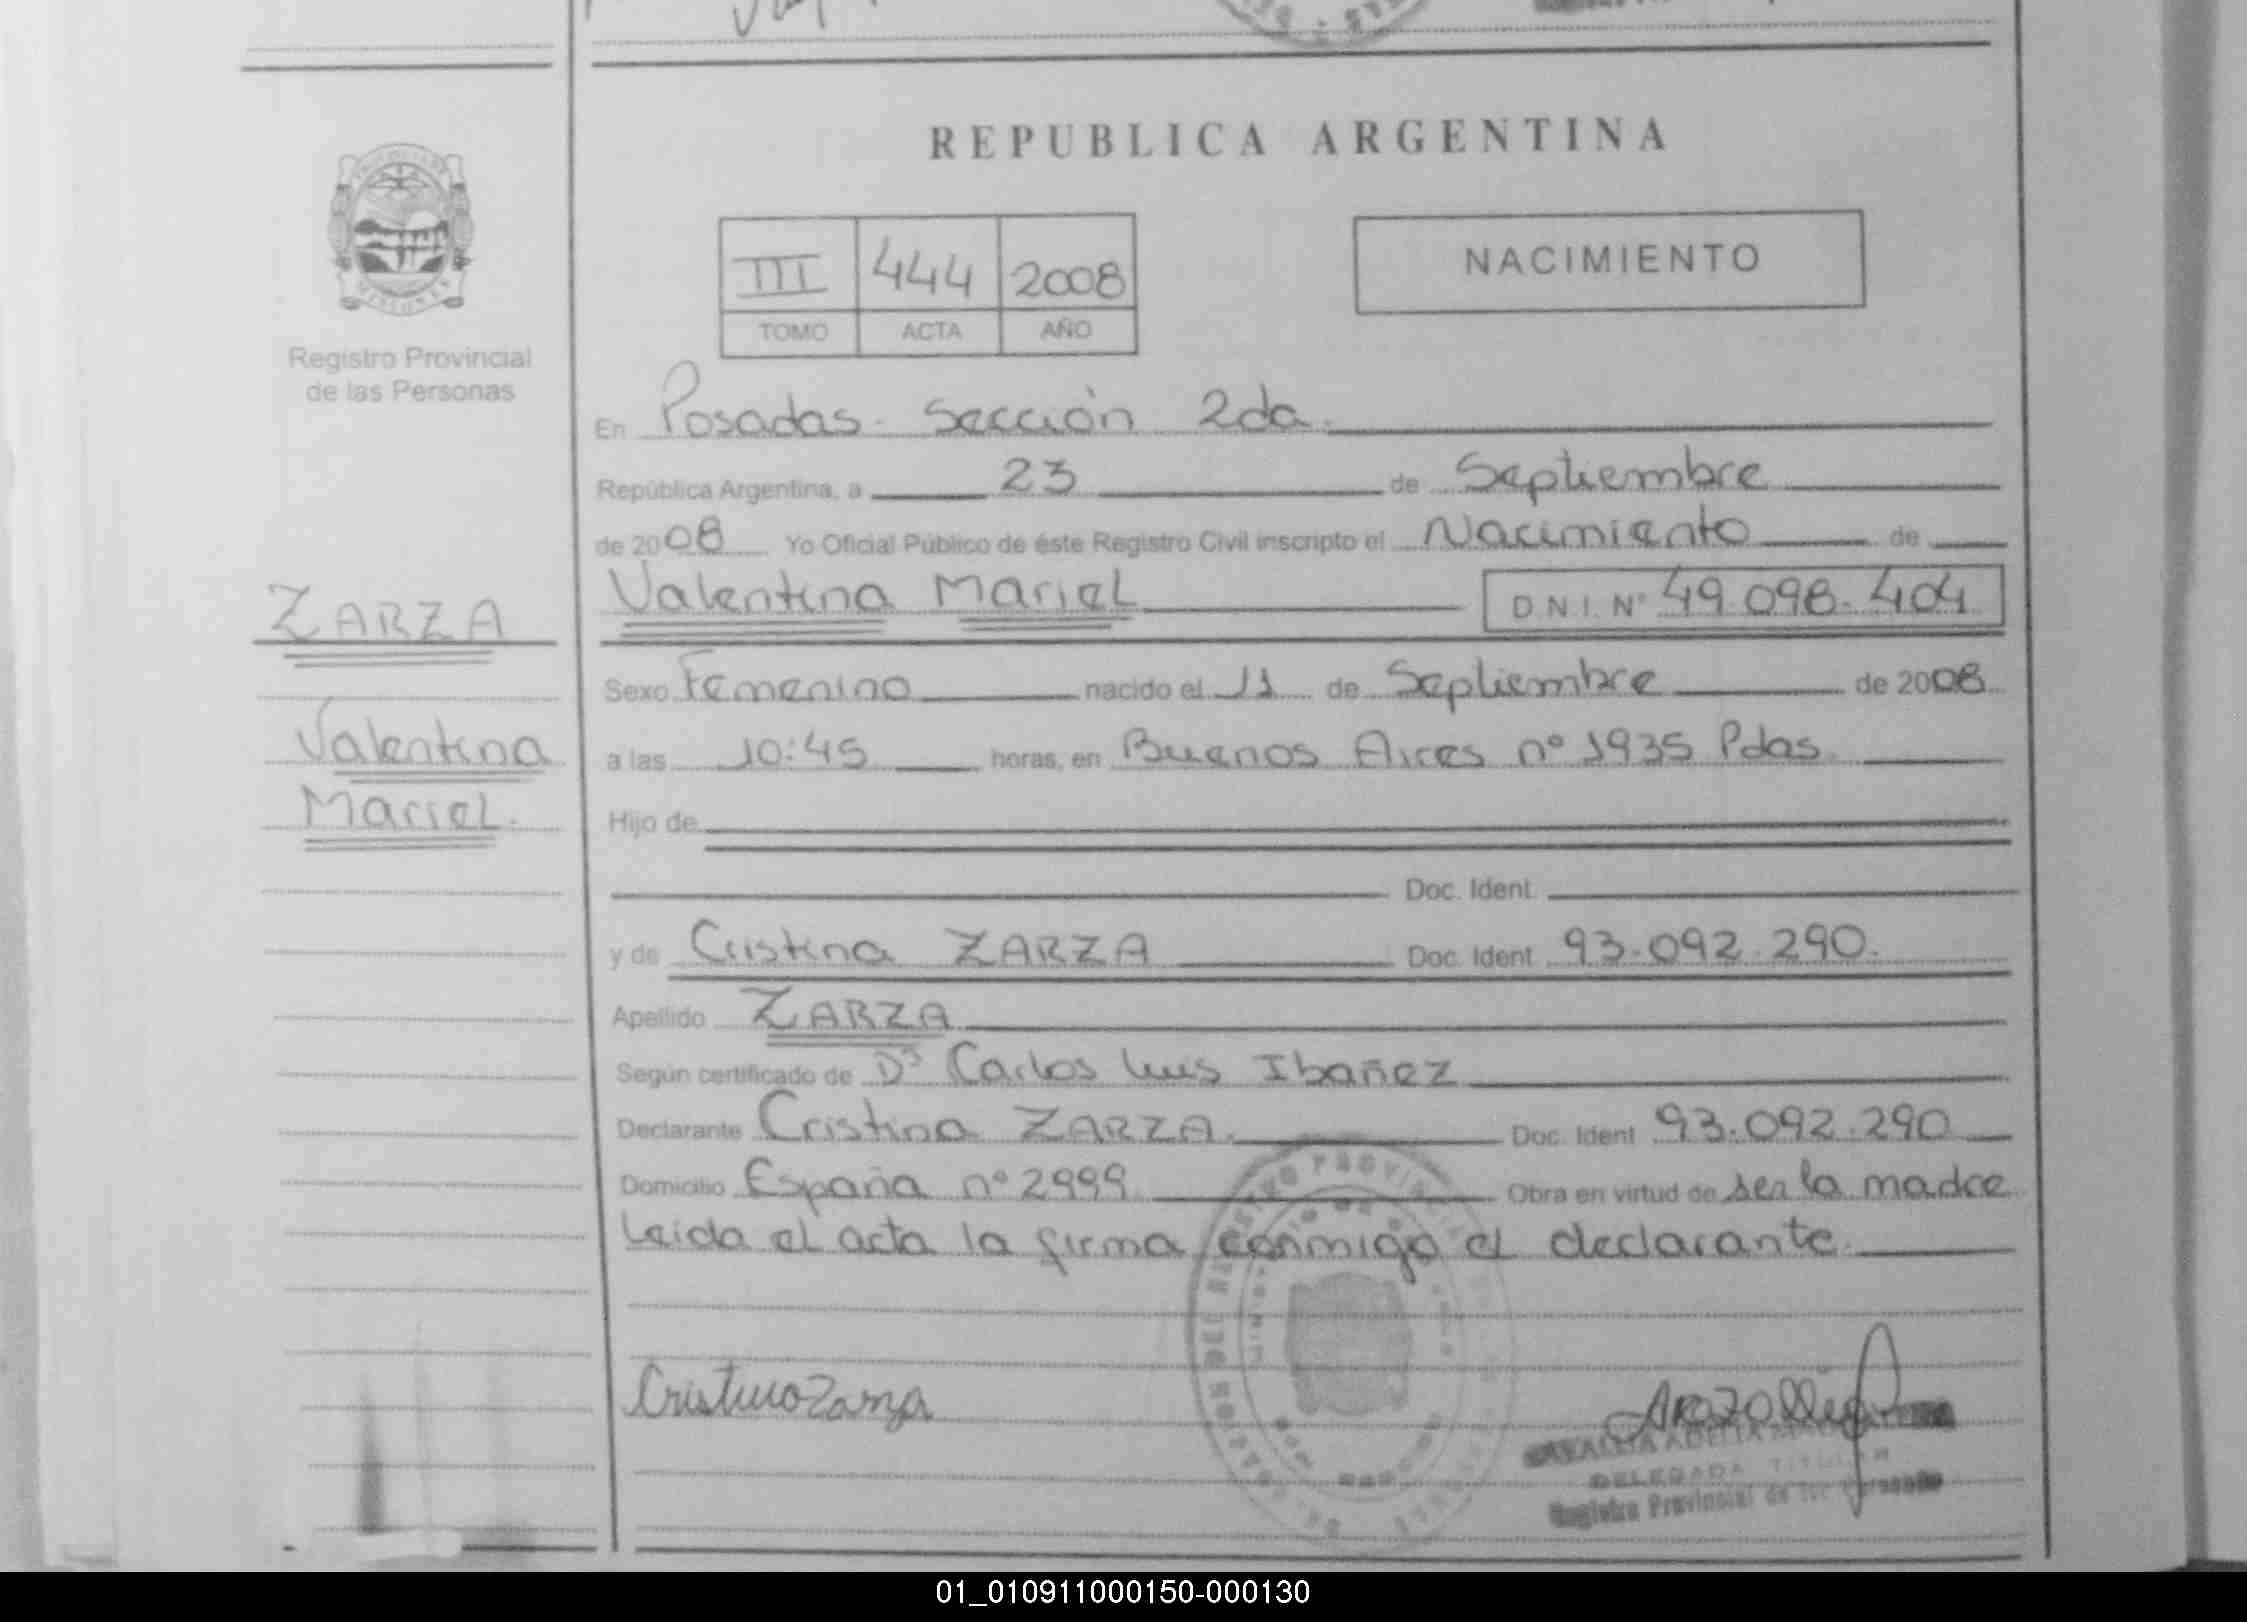 REPUBLICA ARGENTINA
III 444 2008
TOMO ACTA AÑO
NACIMIENTO
Registro Provincial
de las Personas
ZARZA
Valentina
Mariel.
En Posadas. Sección 2da.
República Argentina, a 23 de Septiembre
de 2008 Yo Oficial Público de éste Registro Civil inscripto el Nacimiento de
Valentina Mariel D.N.I. Nº 49.098.404
Sexo Femenino nacido el 11 de Septiembre de 2008
a las 10:45 horas, en Buenos Aires nº 1935 Pdas.
Hijo de
Doc. Ident.
y de Cristina ZARZA Doc. Ident. 93.092.290.
Apellido ZARZA
Según certificado de Carlos Luis Ibañez
Declarante Cristina ZARZA. Doc. Ident. 93.092.290
Domicilio España nº 2999 Obra en virtud de ser la madre
Leida el acta la firma conmigo el declarante.
Cristina Zarza
DELEGADA TITULAR
Registro Provincial de las Personas
01_010911000150-000130